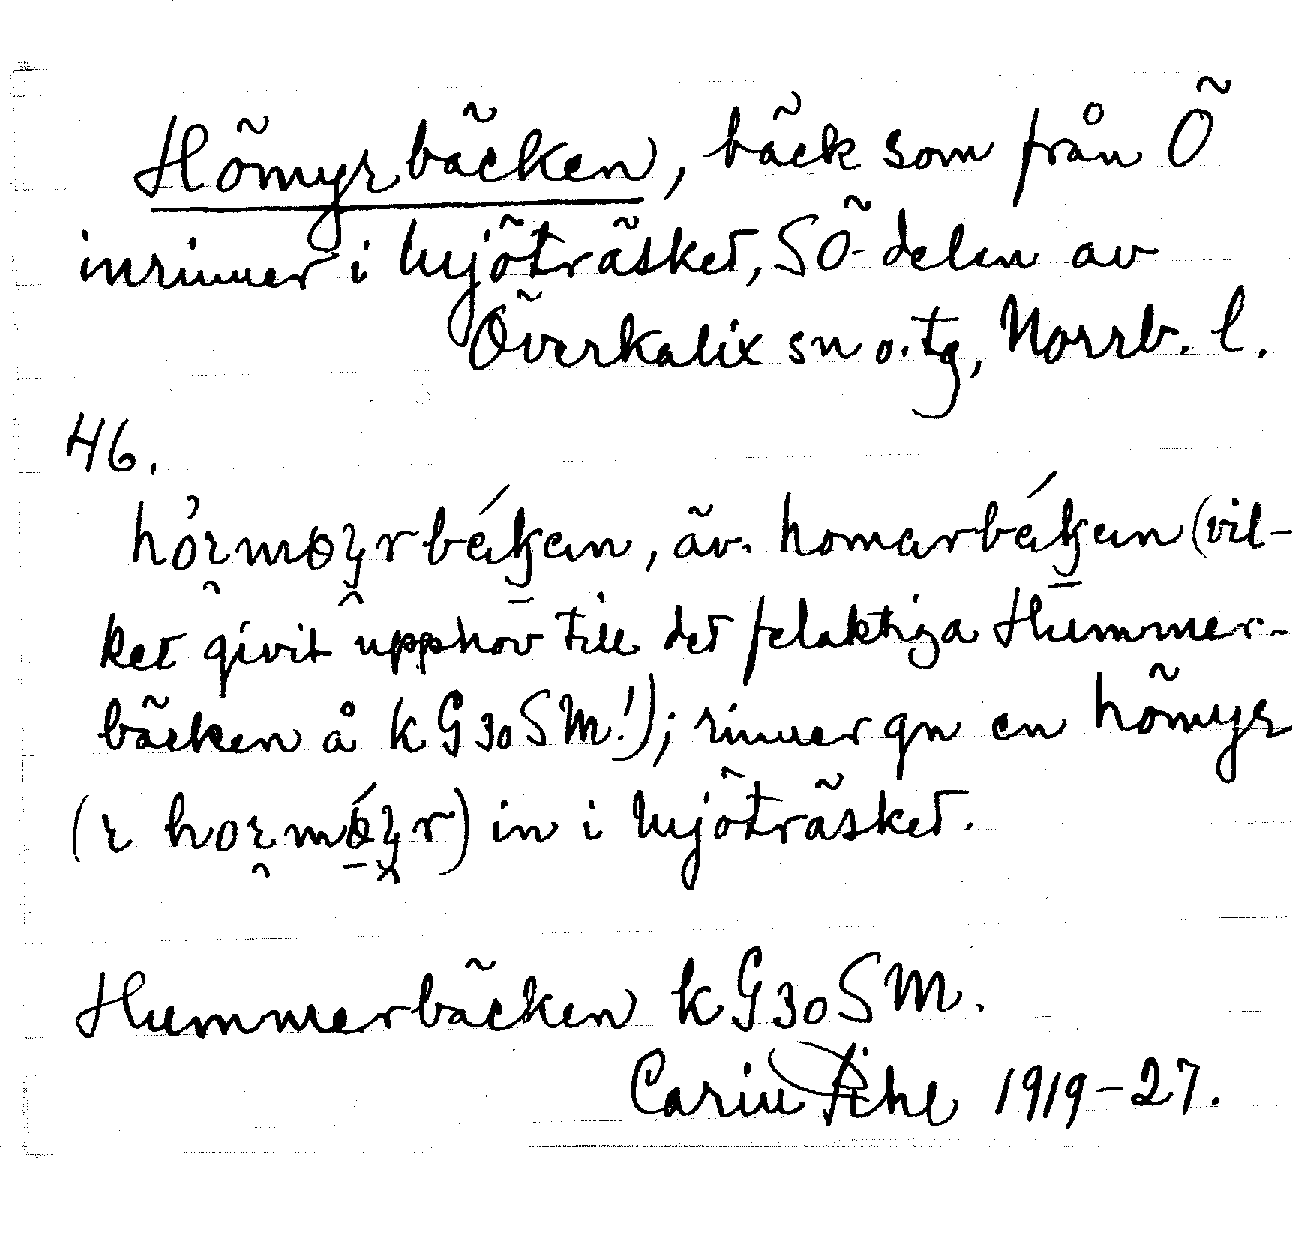 Hömyrbäcken, bäck som från Ö
inrinner i Mjöträsket, SÖ-delen av
Överkalix sn o. tg, Norrb. l.
46.
äv. (vil-
ket givit upphov till det felaktiga Hummer-
bäcken å kG30SM!); rinner gn en hömyr
(r ) in i Mjöträsket.
Hummerbäcken kG30SM.
Carin Pihl 1919-27.